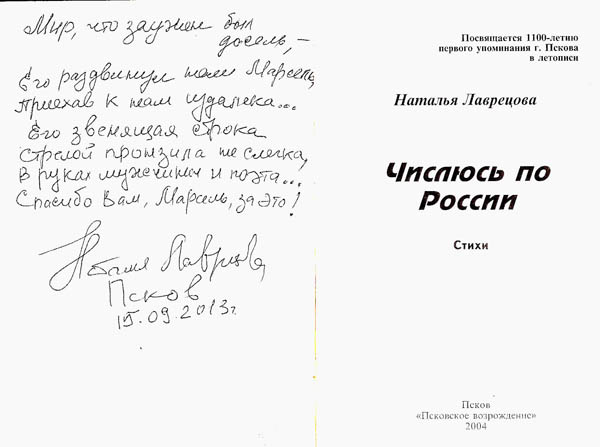 Мир, что заужен был
досель, –
Его раздвинул нам Марсель,
Приехав к нам издалека...
Его звенящая строка
Стрелой пронзила не слегка,
В руках мужчины и поэта...
Спасибо Вам, Марсель, за это!
Наталья Лаврецова
Псков
15.09.2013г.
Посвящается 1100-летию
первого упоминания г. Пскова
в летописи
Наталья Лаврецова
Числюсь по
России
Стихи
Псков
«Псковское возрождение»
2004